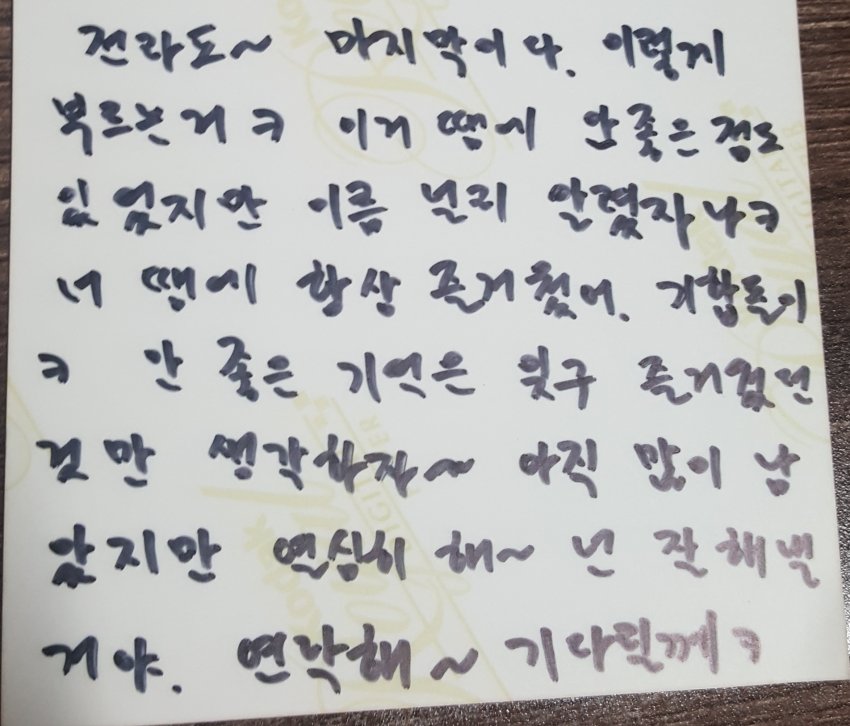 전라도~ 마지막이다. 이렇게
부르는거 ㅋ 이거 땜에 안 좋은점도
있었지만 이름 널리 알렸자나ㅋ
너 땜에 항상 즐거웠어. 기합돌이
ㅋ 안 좋은 기억은 잊구 즐거웠던
것만 생각하자~ 아직 많이 남
았지만 열심히 해~ 넌 잘해낼
거야. 연락해~ 기다릴께ㅋ